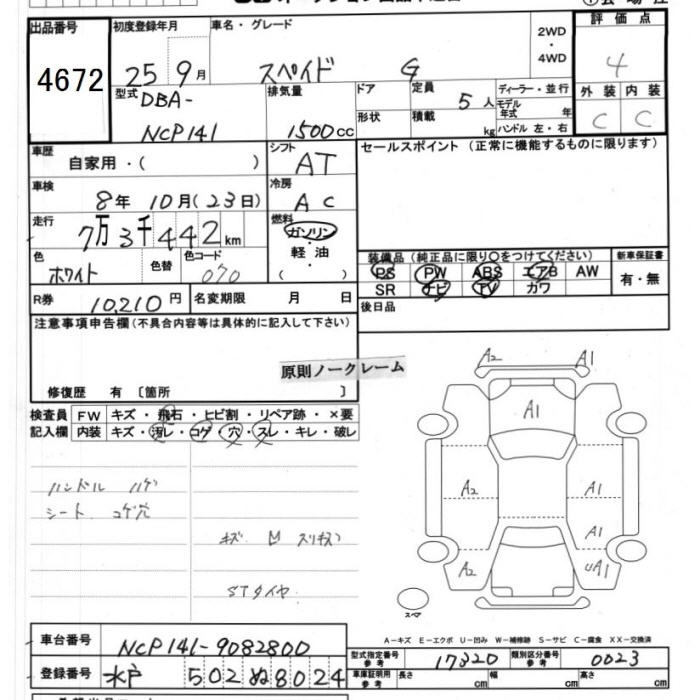 出品番号 初度登録年月 車名・グレード 2WD・4WD 評価点
4672 25 9月 スペイド G 4
型式 DBA- 排気量 ドア 定員 5人 ディーラー・並行 外装 内装
NCP141 1500cc 形状 積載 kg モデル年式 年 C C
ハンドル 左・右
車歴 自家用・( ) シフト AT セールスポイント (正常に機能するものに限ります)
車検 8年 10月(23日) 冷房 AC
走行 7万3千442km 燃料 ガソリン・軽油・( )
色 ホワイト 色替 色コード 070
装備品 (純正品に限り○をつけてください) 新車保証書
PS PW ABS エアB AW 有・無
SR ナビ TV カワ
R券 10,210円 名変期限 月 日 後日品
注意事項申告欄 (不具合内容等は具体的に記入して下さい)
原則ノークレーム
修復歴 有 〔箇所 〕
検査員記入欄 FW キズ・飛石・ヒビ割・リペア跡・×要
内装 キズ・汚レ・コゲ・穴・スレ・キレ・破レ
ハンドル ハゲ
シート コゲ穴
STタイヤ
A2 A1
A1
A2 A1
A1
A2 UA1
スペア
A-キズ E-エクボ U-凹み W-補修跡 S-サビ C-腐食 XX-交換済
車台番号 NCP141-9082800
型式指定番号 参考 17320 類別区分番号 参考 0023
登録番号 水戸 502 ぬ 8024
車庫証明用 参考 長さ cm 幅 cm 高さ cm